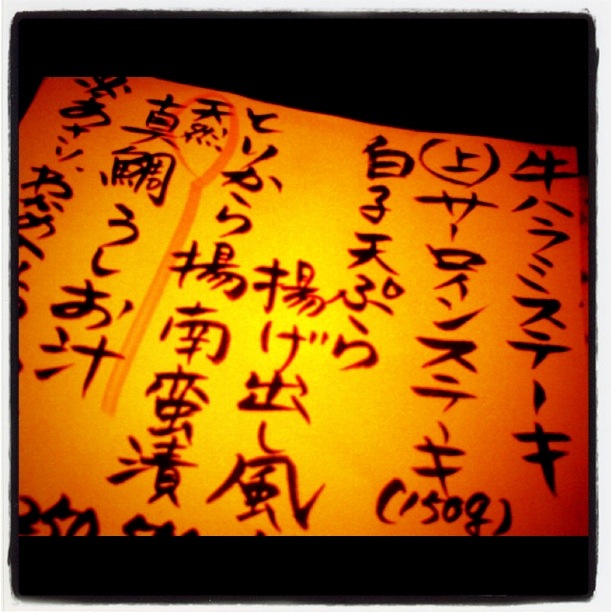 牛ハラミステーキ
(上)サーロインステーキ
(150g)
白子天ぷら
揚げ出し風
とりから
揚南蛮漬
天然
真鯛うしお汁
あさり